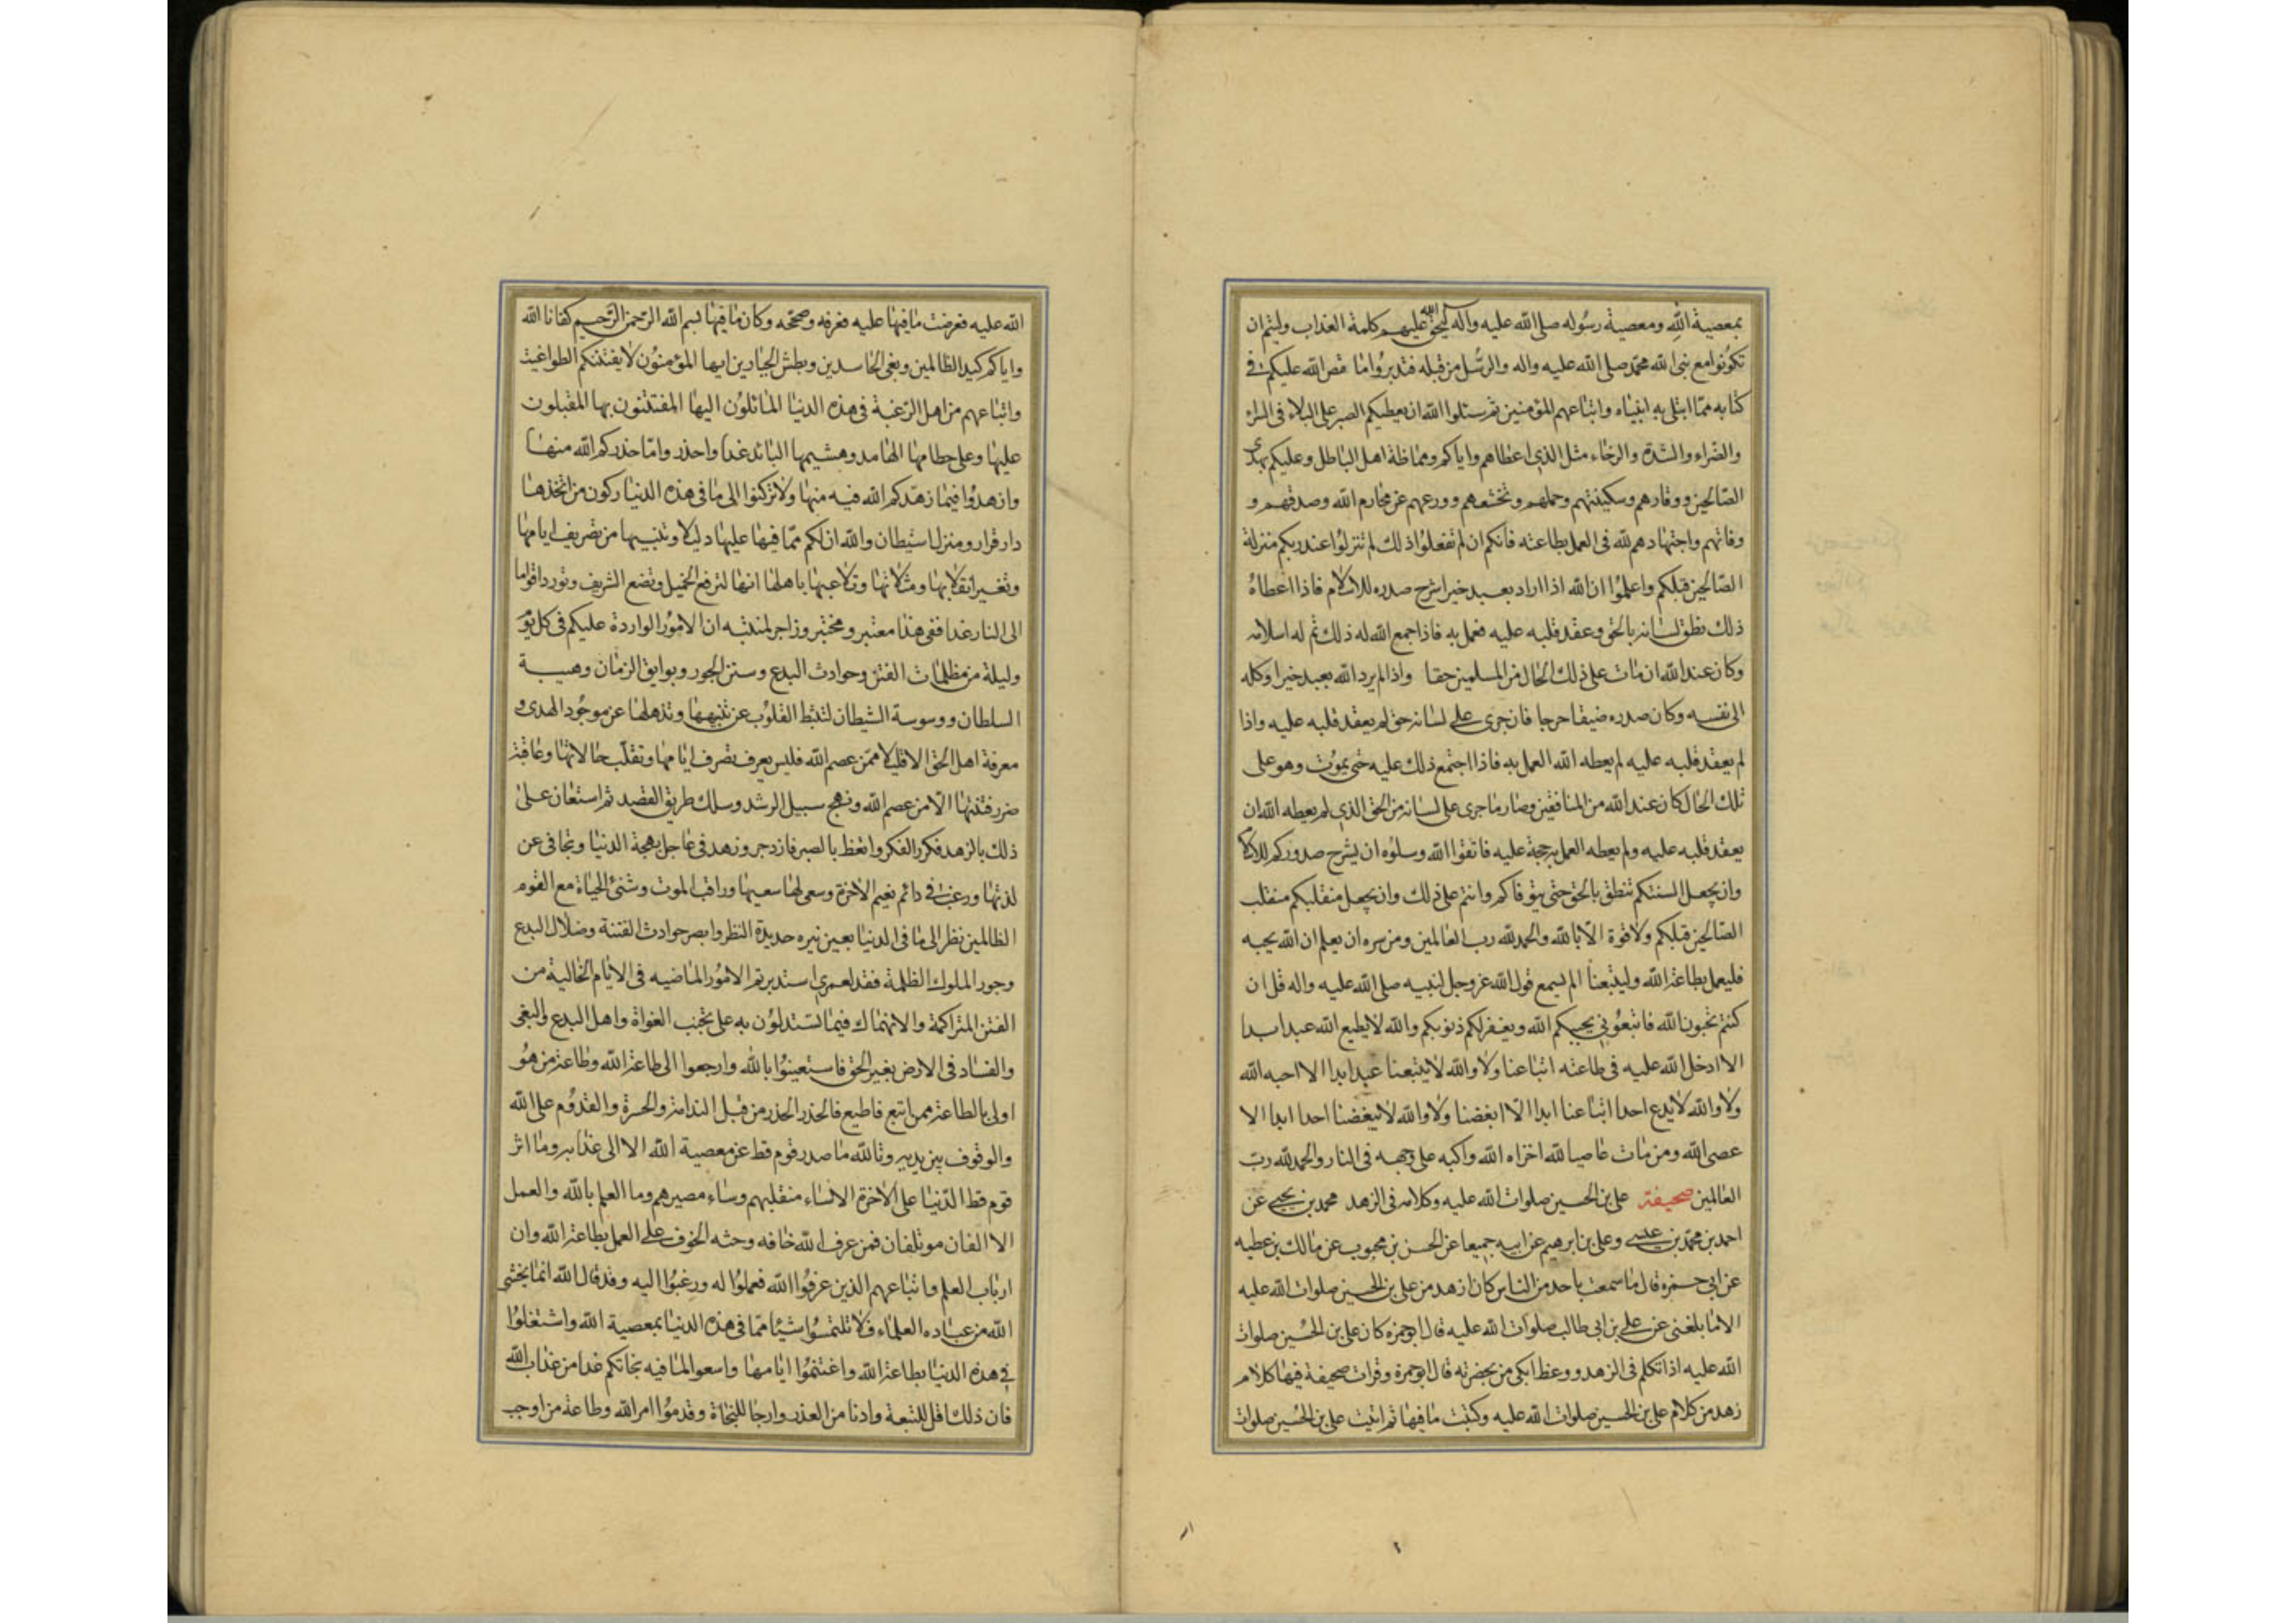 بمعصية الله ومعصية رسوله صلى الله عليه واله ليحق الله عليهم كلمة العذاب وليتم ان
تكونوا مع نبى الله محمد صلى الله عليه واله والرسل من قبله فتدبروا ما قص الله عليكم فى
كتابه مما ابتلى به انبياه واتباعهم المؤمنين ثم سئلوا الله ان يعطيكم الصبر على البلاء فى السراء
والضراء والشدة والرخاء مثل الذى اعطاهم واياكم ومماظة اهل الباطل وعليكم بهدى
الصالحين ووقارهم وسكينتهم وحلمهم وتخشعهم وورعهم عن محارم الله وصدقهم و
وفائهم واجتهادهم لله فى العمل بطاعته فانكم ان لم تفعلوا ذلك لم تنزلوا عند ربكم منزلة
الصالحين قبلكم واعلموا ان الله اذا اراد بعبد خيرا شرح صدره للاسلام فاذا اعطاه
ذلك نطق لسانه بالحق وعقد قلبه عليه فعمل به فاذا جمع الله له ذلك تم له اسلامه
وكان عند الله ان مات على ذلك الحال من المسلمين حقا واذا لم يرد الله بعبد خيرا وكله
الى نفسه وكان صدره ضيقا حرجا فان جرى على لسانه حق لم يعقد قلبه عليه واذا
لم يعقد قلبه عليه لم يعطه الله العمل به فاذا اجتمع ذلك عليه حتى يموت وهو على
تلك الحال كان عند الله من المنافقين وصار ما جرى على لسانه من الحق الذى لم يعطه الله ان
يعقد قلبه عليه ولم يعطه العمل به حجة عليه فاتقوا الله وسلوه ان يشرح صدوركم للاسلام
وان يجعل السنتكم تنطق بالحق حتى يتوفاكم وانتم على ذلك وان يجعل منقلبكم منقلب
الصالحين قبلكم ولا قوة الا بالله والحمد لله رب العالمين ومن سره ان يعلم ان الله يحبه
فليعمل بطاعة الله وليتبعنا الم يسمع قول الله عز وجل لنبيه صلى الله عليه واله قل ان
كنتم تحبون الله فاتبعونى يحببكم الله ويغفر لكم ذنوبكم والله لا يطيع الله عبد ابدا
الا ادخل الله عليه فى طاعته اتباعنا ولا والله لا يتبعنا عبد ابدا الا احبه الله
ولا والله لا يدع احد اتباعنا ابدا الا ابغضنا ولا والله لا يبغضنا احد ابدا الا
عصى الله ومن مات عاصيا لله اخزاه الله واكبه على وجهه فى النار والحمد لله رب
العالمين صحيفة على بن الحسين صلوات الله عليه وكلامه فى الزهد محمد بن يحيى عن
احمد بن محمد بن عيسى وعلى بن ابرهيم عن ابيه جميعا عن الحسن بن محبوب عن مالك بن عطيه
عن ابى حمزه قال ما سمعت باحد من الناس كان ازهد من على بن الحسين صلوات الله عليه
الا ما بلغنى عن على بن ابى طالب صلوات الله عليه قال ابو حمزه كان على بن الحسين صلوات
الله عليه اذا تكلم فى الزهد ووعظ ابكى من بحضرته قال ابو حمزة وقرات صحيفة فيها كلام
زهد من كلام على بن الحسين صلوات الله عليه وكتبت ما فيها ثم اتيت على بن الحسين صلوات
الله عليه فعرضت ما فيها عليه فعرفه وصححه وكان ما فيها بسم الله الرحمن الرحيم كفانا الله
واياكم كيد الظالمين وبغى الحاسدين وبطش الجبارين ايها المؤمنون لا يفتننكم الطواغيت
واتباعهم من اهل الرغبة فى هذه الدنيا المائلون اليها المفتتنون بها المقبلون
عليها وعلى حطامها الهامد وهشيمها البائد غدا واحذروا ما حذركم الله منها
وازهدوا فيما زهدكم الله فيه منها ولا تركنوا الى ما فى هذه الدنيا ركون من اتخذها
دار قرار ومنزل استيطان والله ان لكم مما فيها عليها دليلا وتنبيها من تصريف ايامها
وتغير انقلابها ومثلاتها وتلاعبها باهلها انها لترفع الخميل وتضع الشريف وتورد اقواما
الى النار غدا ففى هذا معتبر ومختبر وزاجر لمنتبه ان الامور الواردة عليكم فى كل يوم
وليلة من مظلمات الفتن وحوادث البدع وسنن الجور وبوايق الزمان وهيبة
السلطان ووسوسة الشيطان لتثبط القلوب عن تنبهها وتذهلها عن موجود الهدى و
معرفة اهل الحق الا قليلا ممن عصم الله فليس يعرف تصرف ايامها وتقلب حالاتها وعاقبة
ضرر فتنتها الا من عصم الله ونهج سبيل الرشد وسلك طريق القصد ثم استعان على
ذلك بالزهد فكرر الفكر واتعظ بالصبر فازدجر وزهد فى عاجل بهجة الدنيا وتجافى عن
لذتها ورغب فى دائم نعيم الاخرة وسعى لها سعيها وراقب الموت وشنئ الحياة مع القوم
الظالمين نظر الى ما فى الدنيا بعين نيره حديدة النظر وابصر حوادث الفتنة وضلال البدع
وجور الملوك الظلمة فقد لعمرى استدبرتم الامور الماضيه فى الايام الخالية من
الفتن المتراكمة والانهماك فيما تستدلون به على تجنب الغواة واهل البدع والبغى
والفساد فى الارض بغير الحق فاستعينوا بالله وارجعوا الى طاعة الله وطاعة من هو
اولى بالطاعة ممن اتبع فاطيع فالحذر الحذر من قبل الندامة والحسرة والقدوم على الله
والوقوف بين يديه وتالله ما صدر قوم قط عن معصية الله الا الى عذابه وما اثر
قوم قط الدنيا على الاخرة الا ساء منقلبهم وساء مصيرهم وما العلم بالله والعمل
الا الفان موتلفان فمن عرف الله خافه وحثه الخوف على العمل بطاعة الله وان
ارباب العلم واتباعهم الذين عرفوا الله فعملوا له ورغبوا اليه وقد قال الله انما يخشى
الله من عباده العلماء فلا تلتمسوا شيئا مما فى هذه الدنيا بمعصية الله واشتغلوا
فى هذه الدنيا بطاعة الله واغتنموا ايامها واسعوا لما فيه نجاتكم غدا من عذاب الله
فان ذلك اقل للتبعة وادنا من العذر وارجا للنجاة وقدموا امر الله وطاعة من اوجب